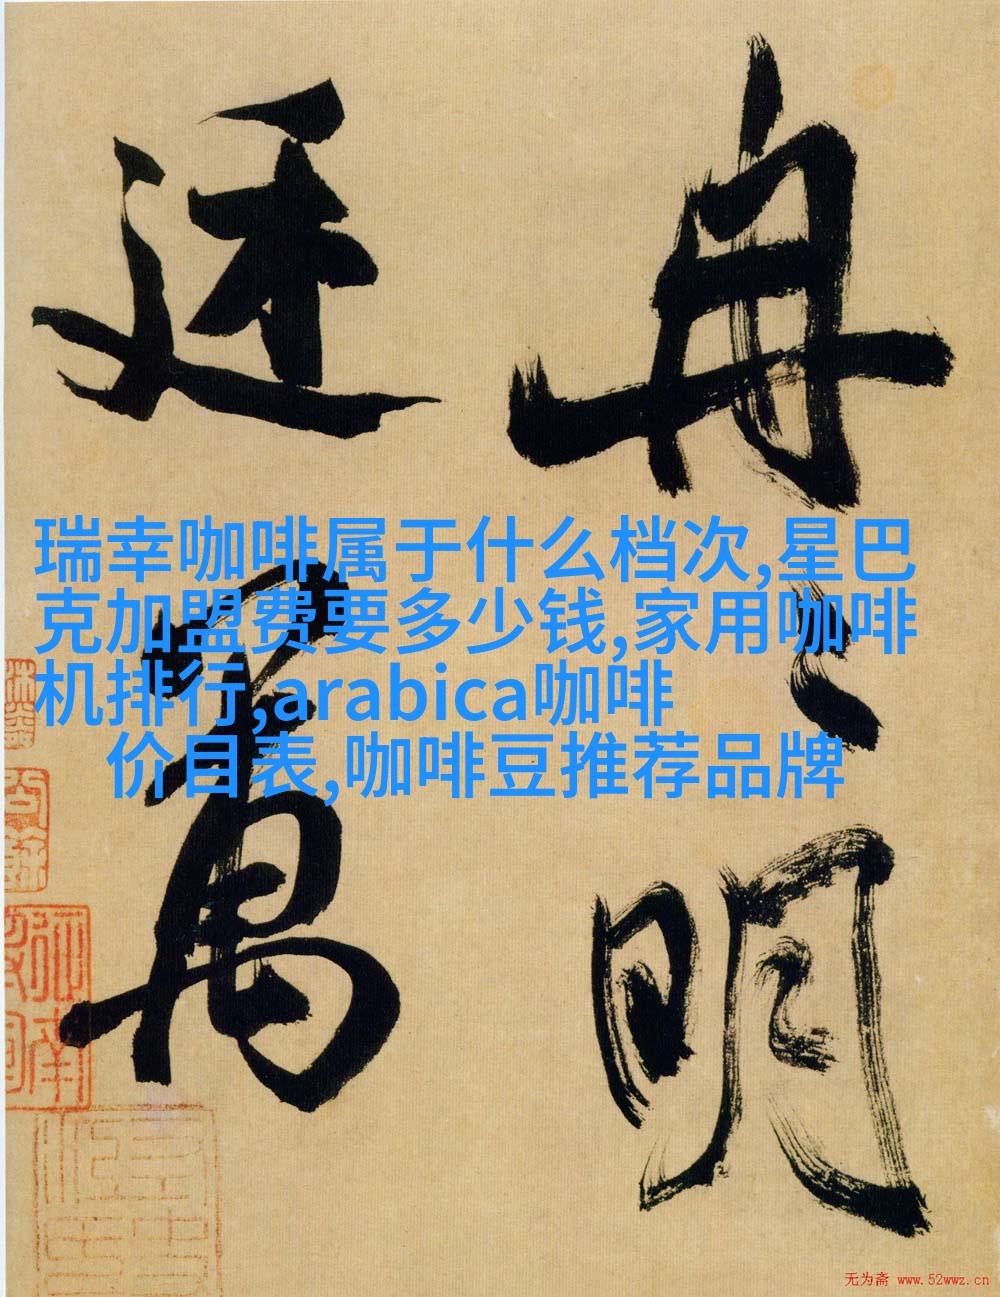 瑞幸咖啡属于什么档次,星巴
克加盟费要多少钱,家用咖啡
机排行,arabica咖啡
价目表,咖啡豆推荐品牌
冉〻明
萬
无为斋 www.52wwz.cn